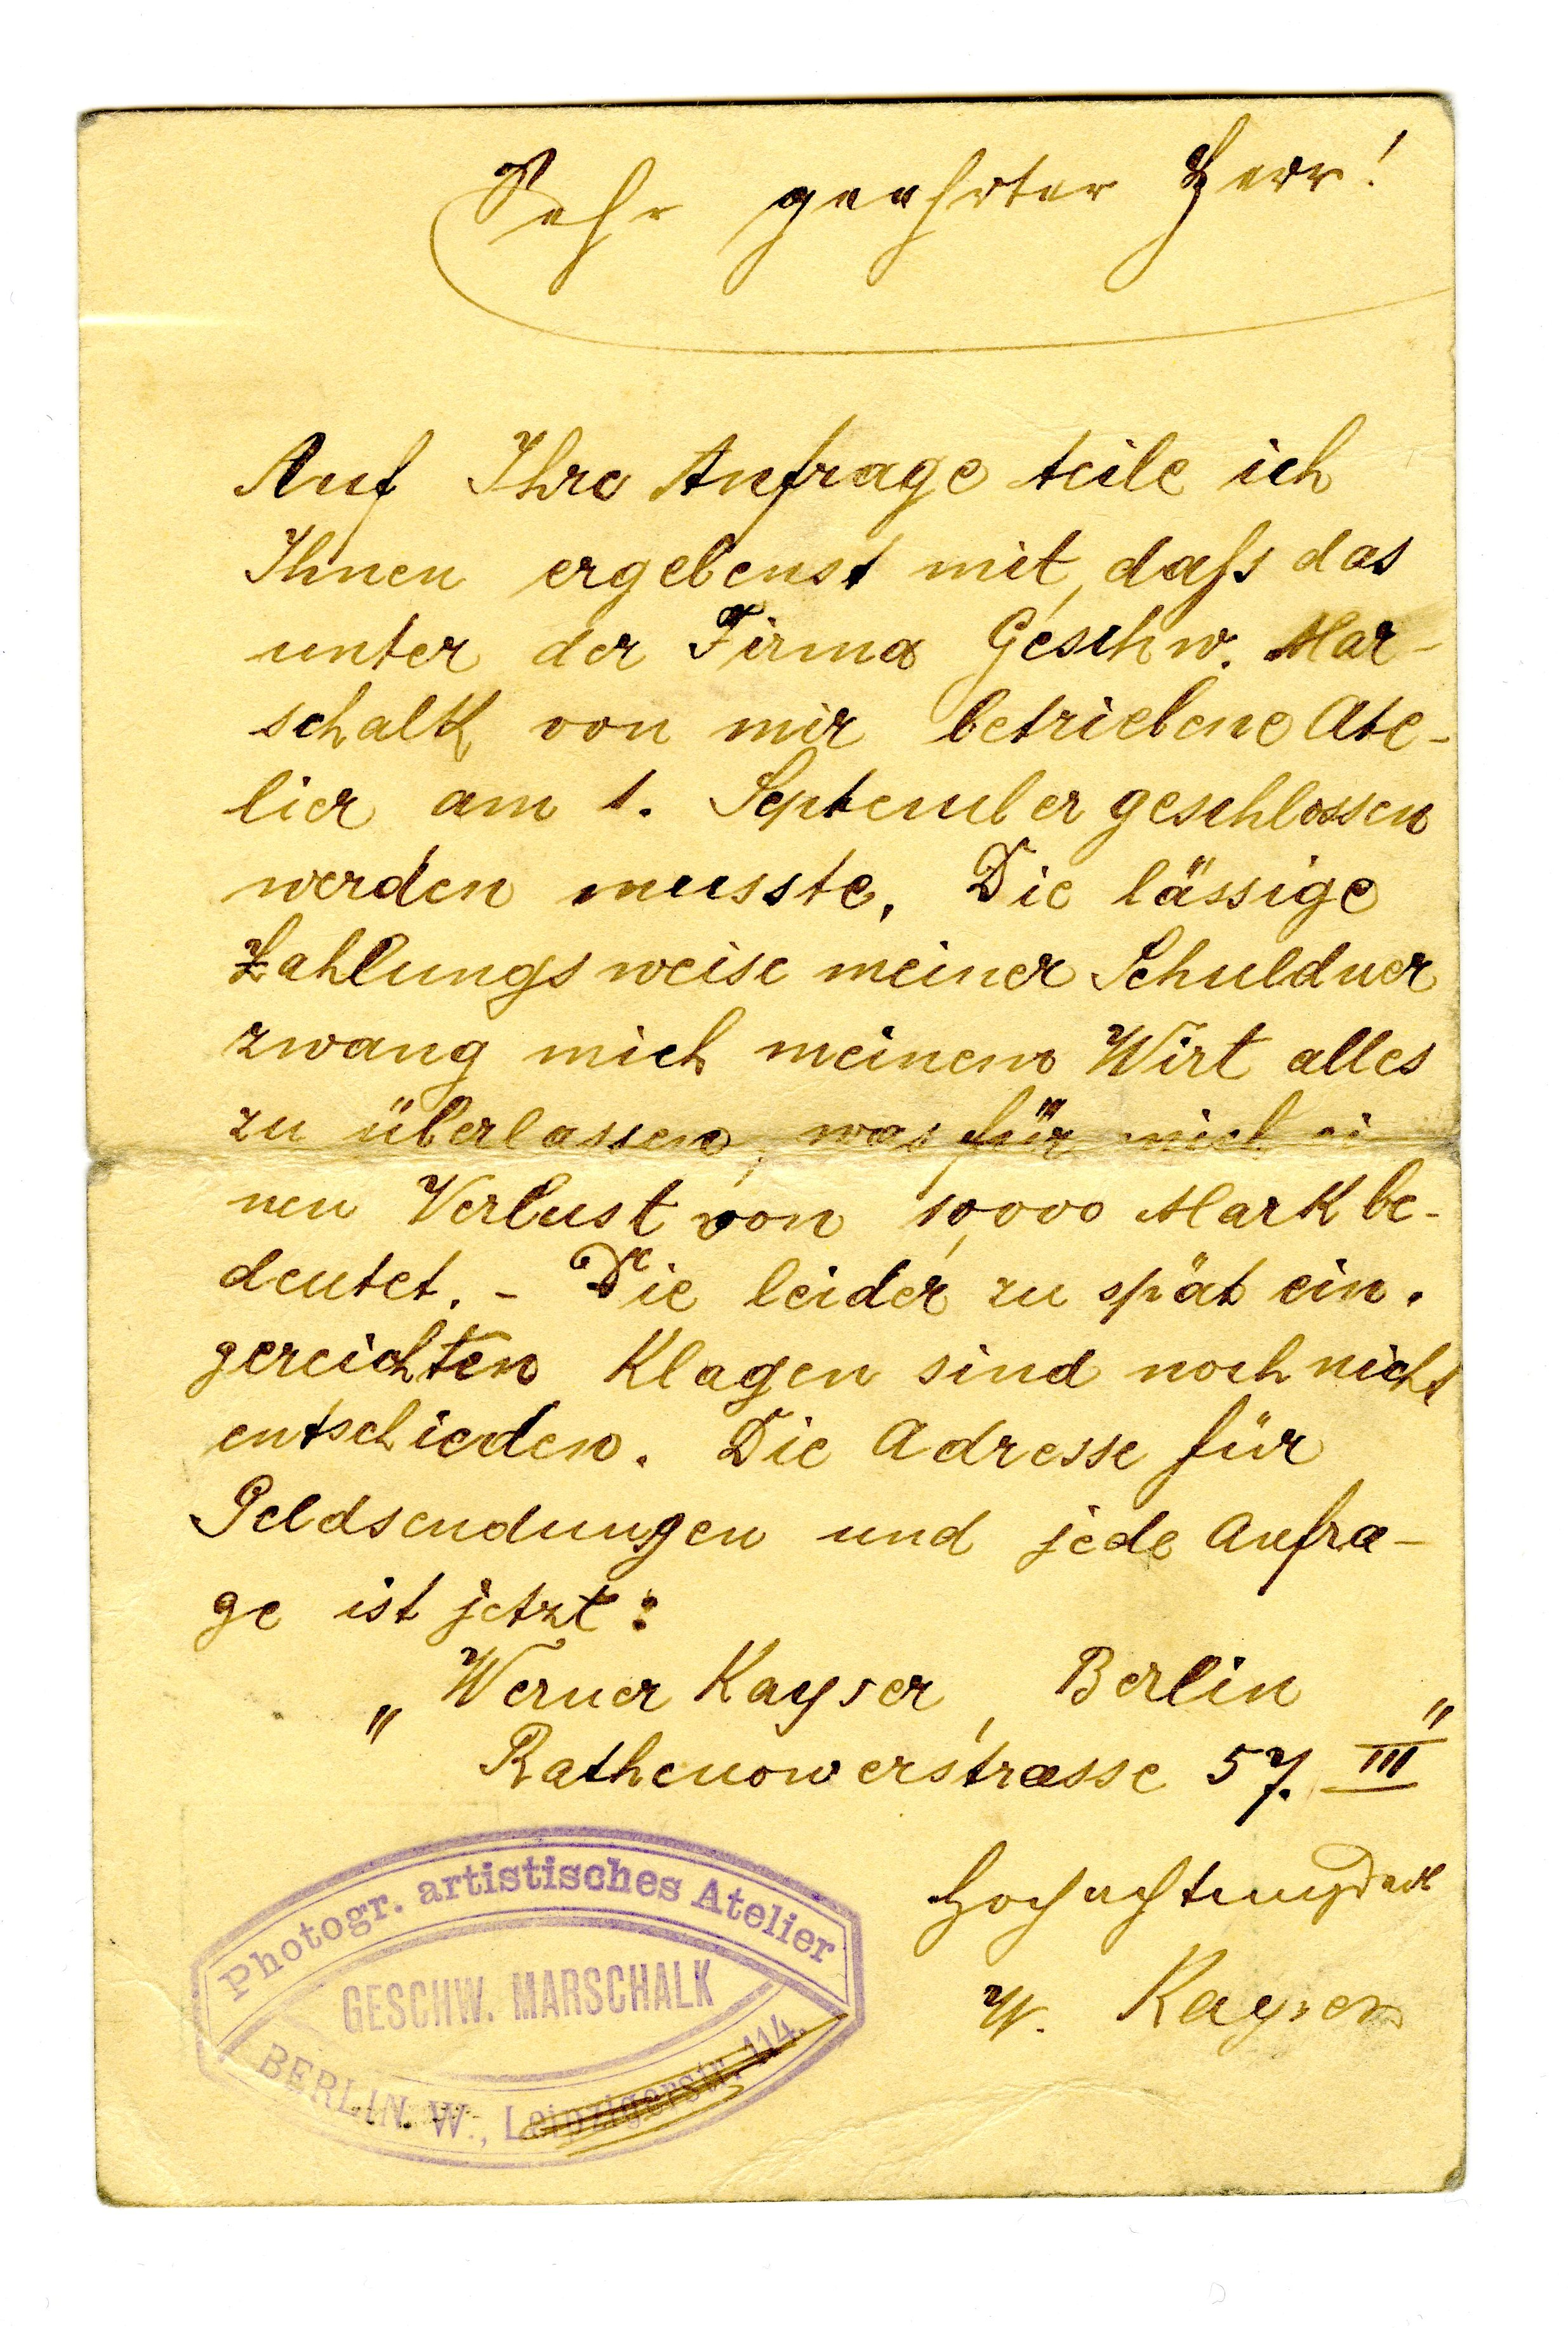 Sehr geehrter Herr!
Auf Ihre Anfrage teile ich
Ihnen ergebenst mit, daſs das
unter der Firma Geschw. Mar-
schalk von mir betriebene Ate-
lier am 1. September geschlossen
werden musste. Die lässige
Zahlungsweise meiner Schuldner
zwang mich meinem Wirt alles
zu überlassen, was für mich ei
nen Verlust von 10,000 Mark be-
deutet. - Die leider zu spät ein-
gereichten Klagen sind noch nicht
entschieden. Die Adresse für
Geldsendungen und jede Anfra-
ge ist jetzt:
„Werner Kayser, Berlin
Rathenowerstrasse 57. III"
Hochachtungsvoll
W. Kayser
Photogr. artistisches Atelier
GESCHW. MARSCHALK
BERLIN. W., Leipzigerstr. 114.